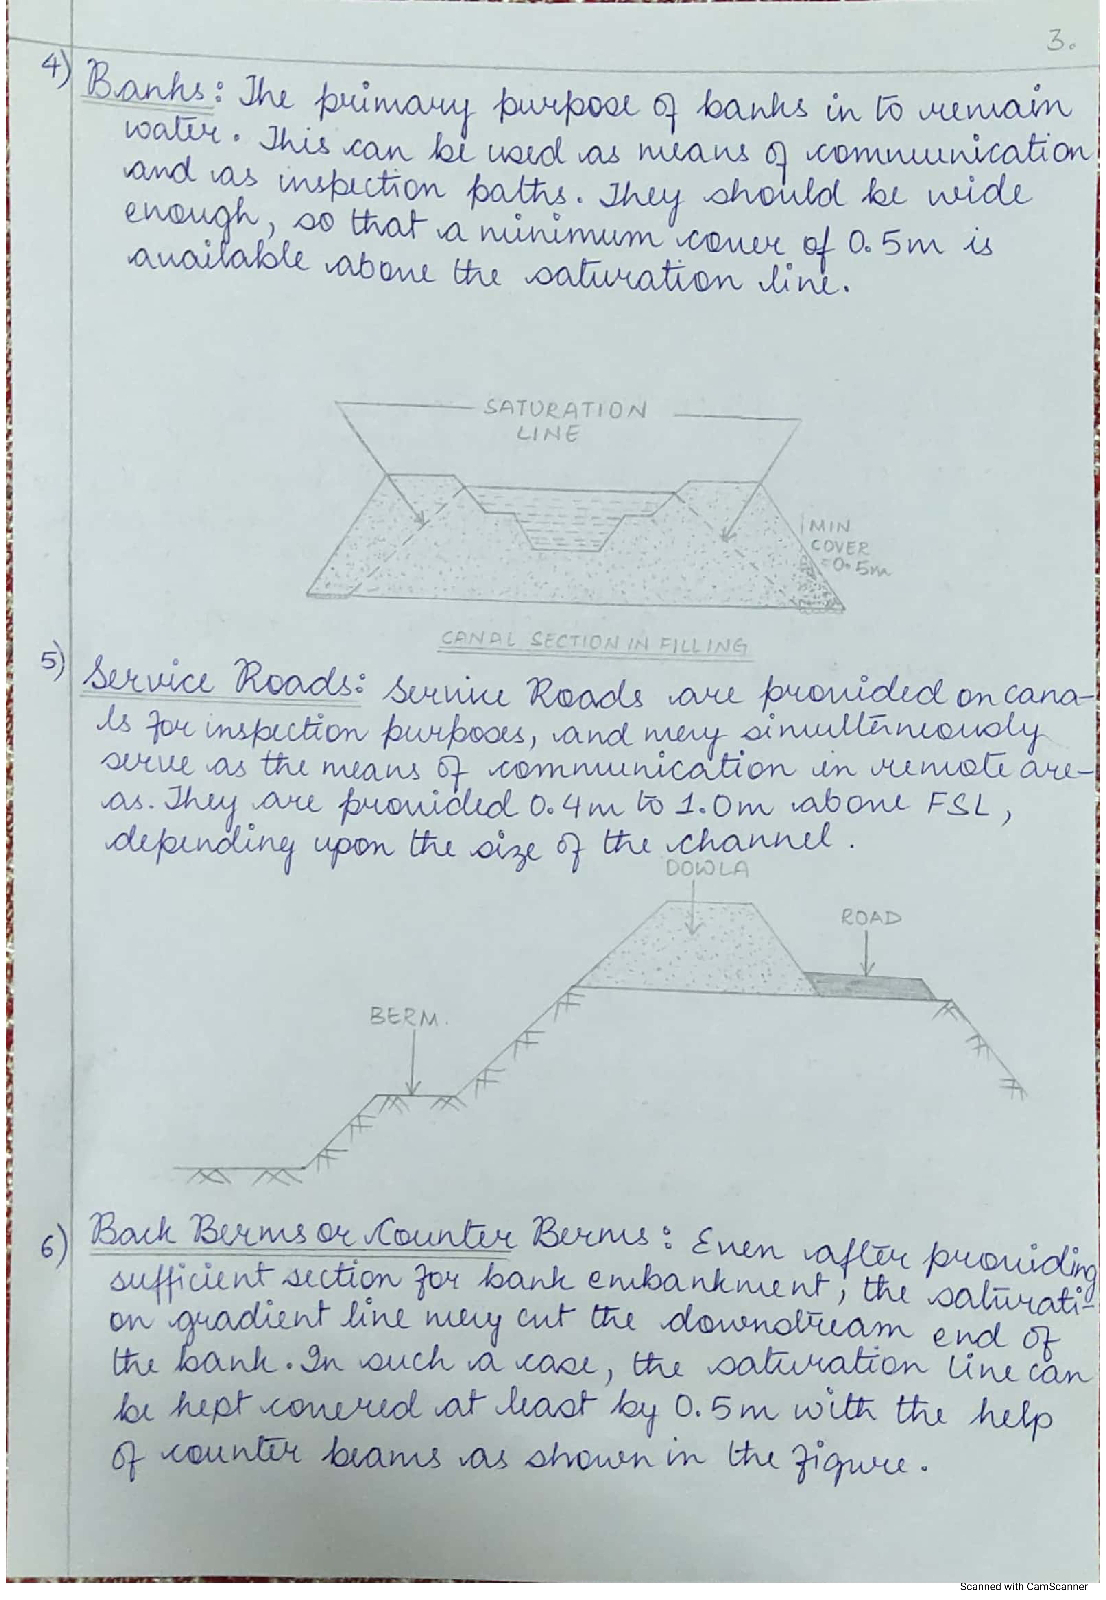 3.
4) Banks: The primary purpose of banks in to remain
water. This can be used as means of communication
and as inspection paths. They should be wide
enough, so that a minimum cover of 0.5m is
available above the saturation line.
SATURATION
LINE
MIN
COVER
=0.5m
CANAL SECTION IN FILLING
5) Service Roads: Service Roads are provided on cana-
ls for inspection purposes, and may simulteneously
serve as the means of communication in remote are-
as. They are provided 0.4m to 1.0m above FSL,
depending upon the size of the channel.
DOWLA
ROAD
BERM.
6) Back Berms or Counter Berms: Even after providing
sufficient section for bank embankment, the saturati-
on gradient line may cut the downstream end of
the bank. In such a case, the saturation line can
be kept covered at least by 0.5m with the help
of counter beams as shown in the figure.
Scanned with CamScanner